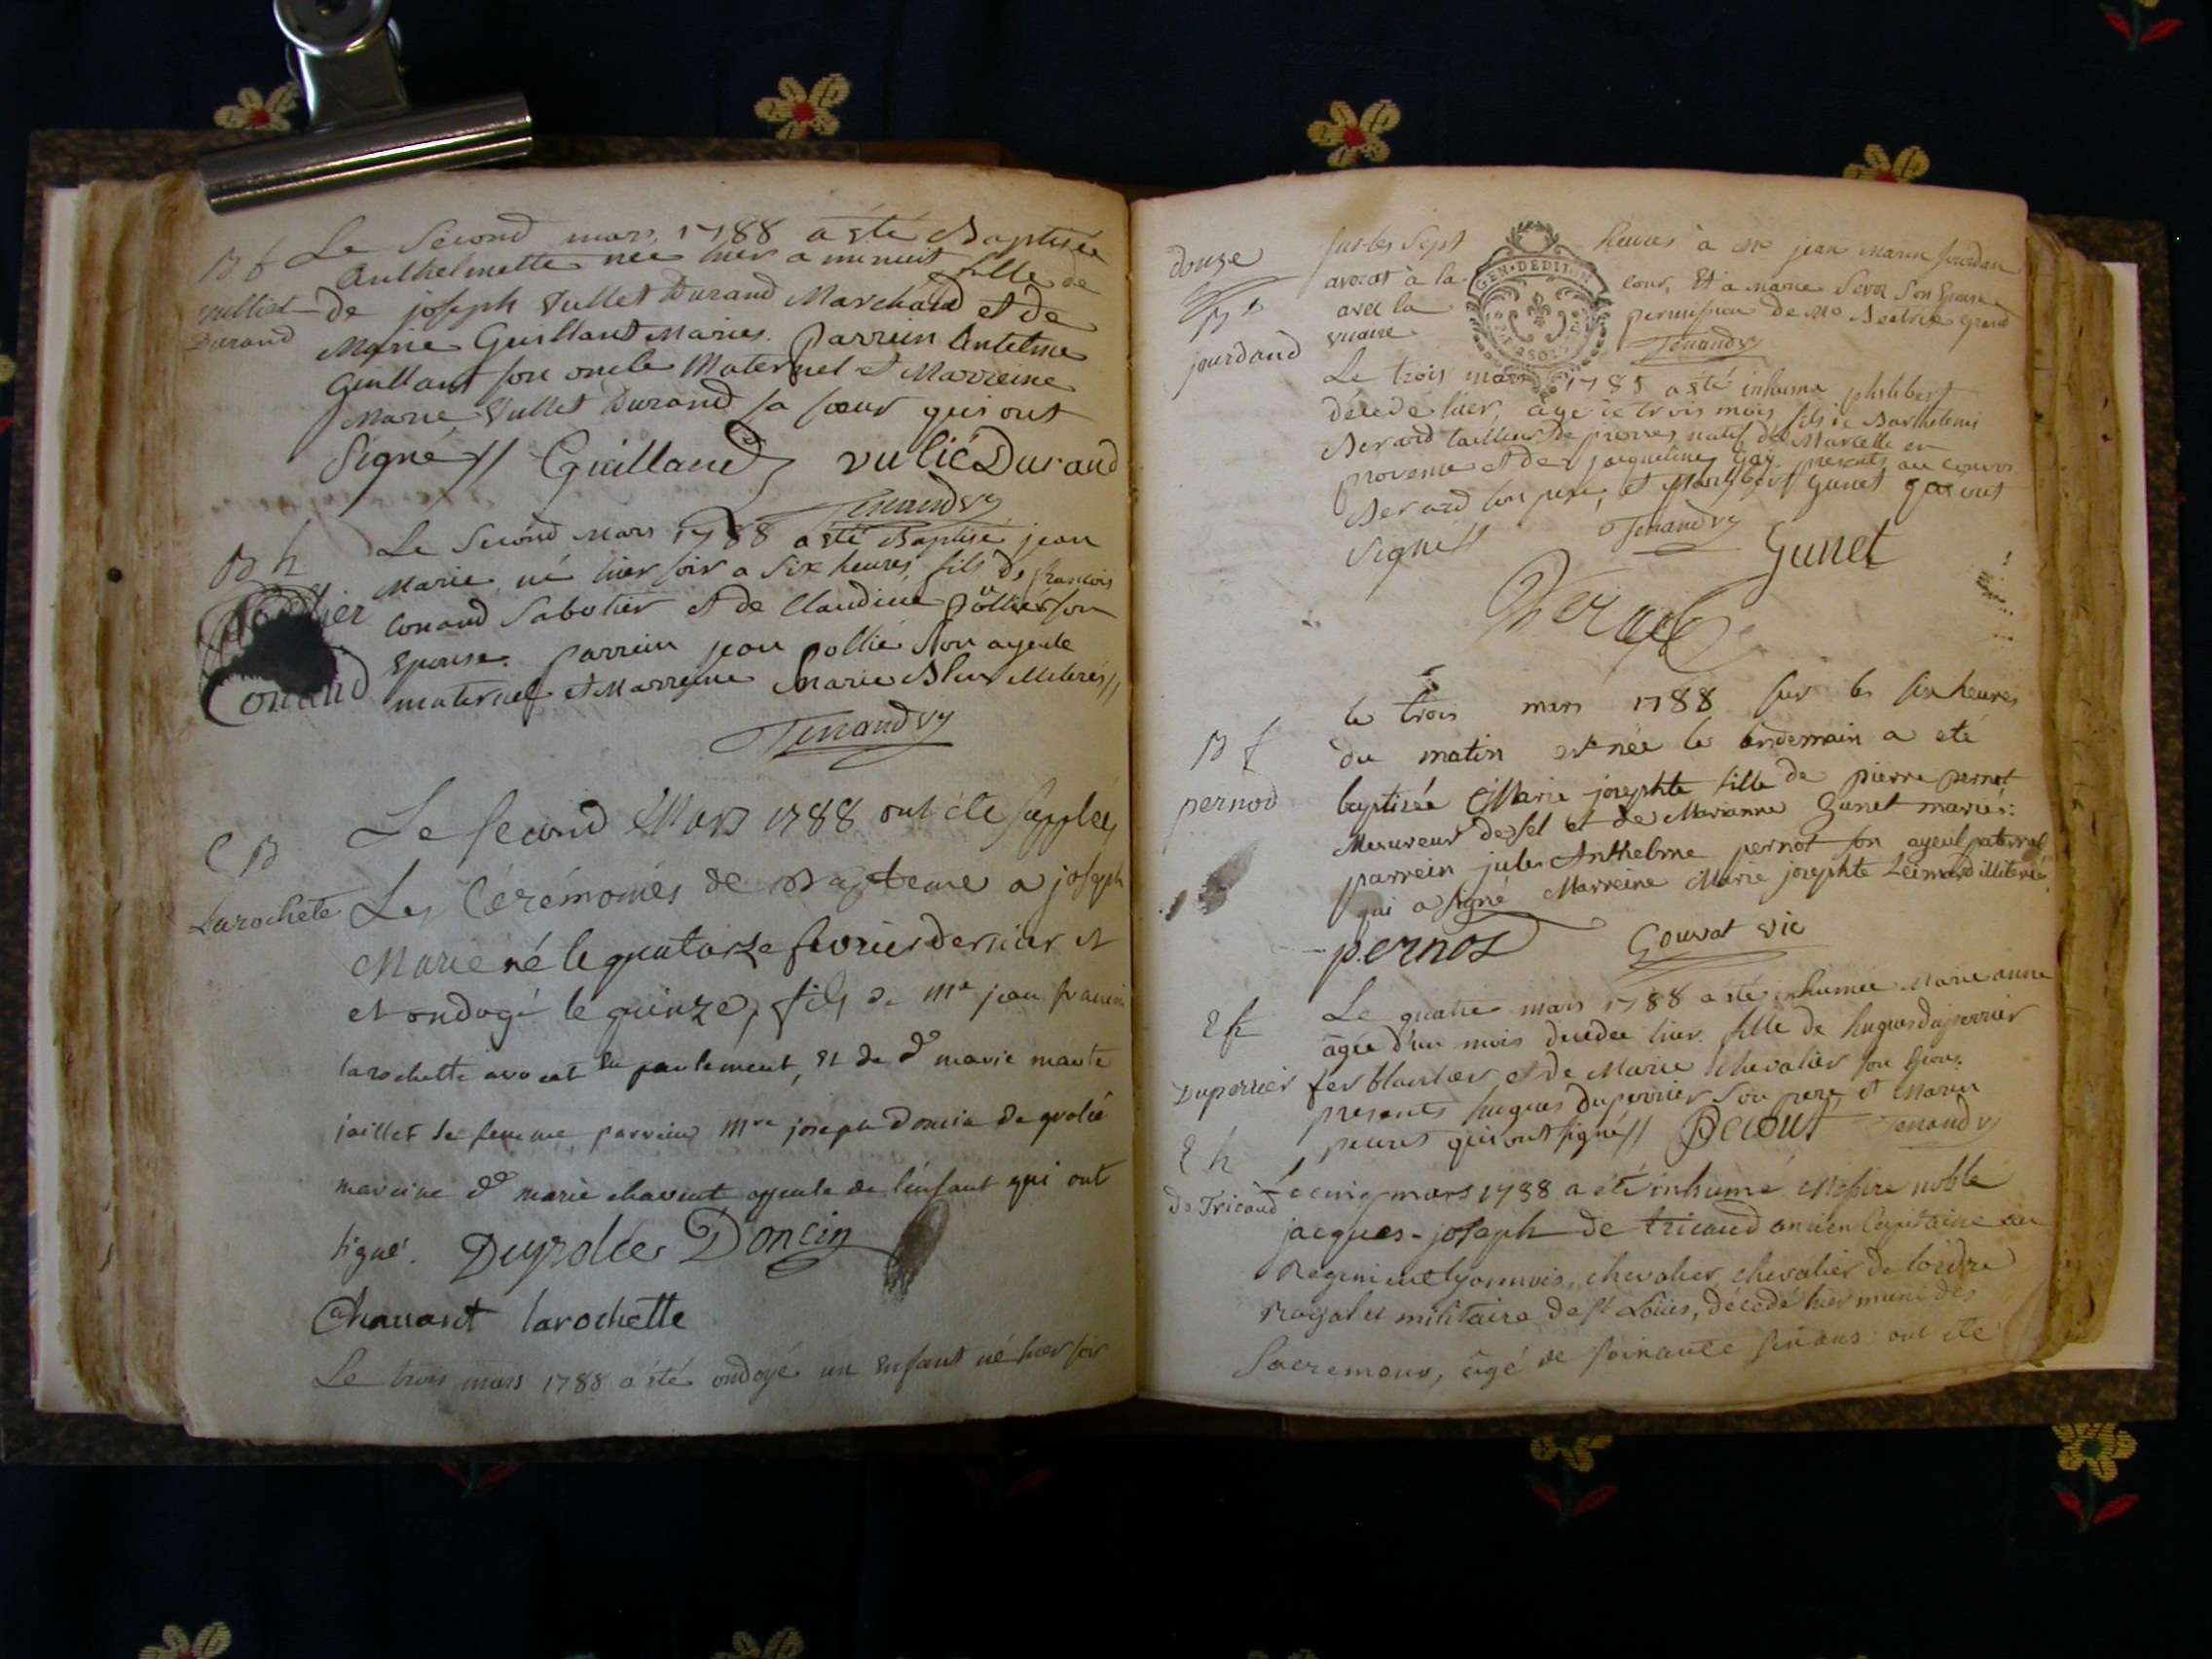 B f
vulliet
Durand
Le Second mars 1788 a été Baptisée
Anthelmette née hier a minuit fille de
de joseph Vullet Durand Marchand et de
Marie Guillant Mariés. parrein Antelme
Guillant son oncle Maternel et Marreine
Marie Vullet Durand sa sœur qui ont
Signé // Guilland vulié Durand
Tenandvy
B h
Conand
Le Second mars 1788 a été Baptisé jean
Marie né hier soir a Six heures, fils de francois
Conand Sabotier et de Claudine pollier son
Epouse. parrein jean pollié Son ayeule
maternel et Marreine Marie illiterés //
Tenandvy
C B
Larochete
Le second Mars 1788 ont été supplées
Les Cérémonies de Bapteme a joseph
Marie né le quatorze fevrier dernier et
et ondoyé le quinze, fils de Me jean francois
larochette avocat en parlement, et de de marie
jaillet sa femme parrein mre joseph Doncin
mareine de marie chavent ayeule de l'enfant qui ont
signé. Doncin
Chavant larochette
Le trois mars 1788 a été ondoyé un Enfant né hier soir
douze
jourdand
sur les Sept heures à Me jean marin jourdan
avocat à la cour, Et a marie Son Epouse
avec la permission de Mr grand
vicaire Tenandvy
GEN·DEDITION
Le trois mars 1788 a été inhumé philibert
décedé hier, agé de trois mois fils de Barthelemi
Berard tailleur de pierres, natif de Marseille en
provence et de jacqueline Gay. presents au convoi
Berard son pere, et Gunet qui ont
Signé // Tenandvy Gunet
Berard
B f
pernod
le trois mars 1788 sur les six heures
du matin est née le lendemain a eté
baptisée Marie josephte fille de pierre pernot
Mesureur de sel et de Marianne Gunet mariés:
parrein jules Anthelme pernot son ayeul paternel
qui a signé Marreine Marie josephte illiterée
pernot Gouvat vic
E f
Duperrier
Le quatre mars 1788 a été inhumée Marie anne
âgée d'un mois decedee hier fille de hugues duperrier
ferblantier et de Marie Chevalier son Epouse
presents hugues Duperrier son pere, et Marin
qui ont signé // Tenandvy
E h
De Tricaud
Le cinq mars 1788 a été inhumé Messire noble
jacques-joseph de tricaud ancien Capitaine au
Regiment lyonnois, chevalier, chevalier de l'ordre
Royal et militaire de St Loüis, décedé hier muni des
Sacremens, âgé de soixante six ans ont été